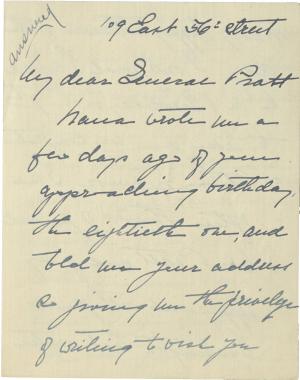 answered
109 East 36th street
My dear General Pratt
Nana wrote me a
few days ago of your
approaching birthday,
the eightieth one, and
told me your address
so giving me the privilege
of writing to wish you